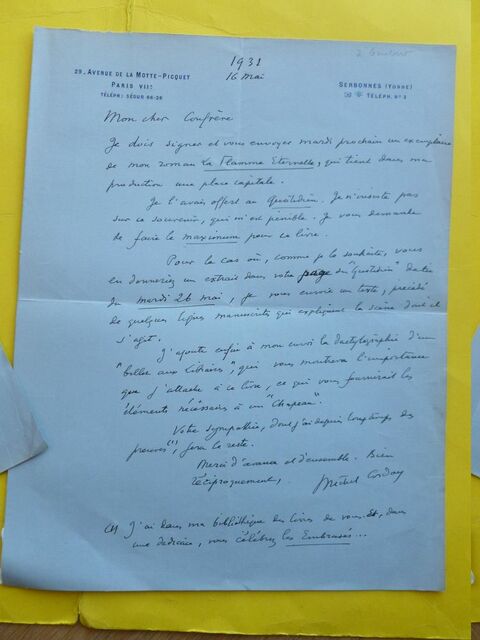 1931
16 mai
29, AVENUE DE LA MOTTE-PICQUET
PARIS VIIᵉ
TÉLÉPH: SÉGUR 66-26
SERBONNES (YONNE)
TÉLÉPH. Nº 3
Mon cher Confrère
Je dois signer et vous envoyer mardi prochain un exemplaire
de mon roman La Flamme Eternelle, qui tient dans ma
production une place capitale.
Je l'avais offert au Quotidien. Je n'insiste pas
sur ce souvenir, qui m'est pénible. Je vous demande
de faire le maximum pour ce livre.
Pour le cas où, comme je le souhaite, vous
en donneriez un extrait dans votre page du "Quotidien" datée
du mardi 26 mai, je vous envoie un texte, précédé
de quelques lignes manuscrites qui expliquent la scène dont il
s'agit.
J'ajoute enfin à mon envoi la dactylographie d'un
"billet aux libraires", qui vous montrera l'importance
que j'attache à ce livre, ce qui vous fournirait les
éléments nécessaires à un "Chapeau".
Votre sympathie, dont j'ai depuis longtemps des
preuves(1), fera le reste.
Merci d'avance et d'ensemble. Bien
réciproquement,
Michel Corday
(1) J'ai dans ma bibliothèque des livres de vous où, dans
une dédicace, vous célébrez les Embrasés...